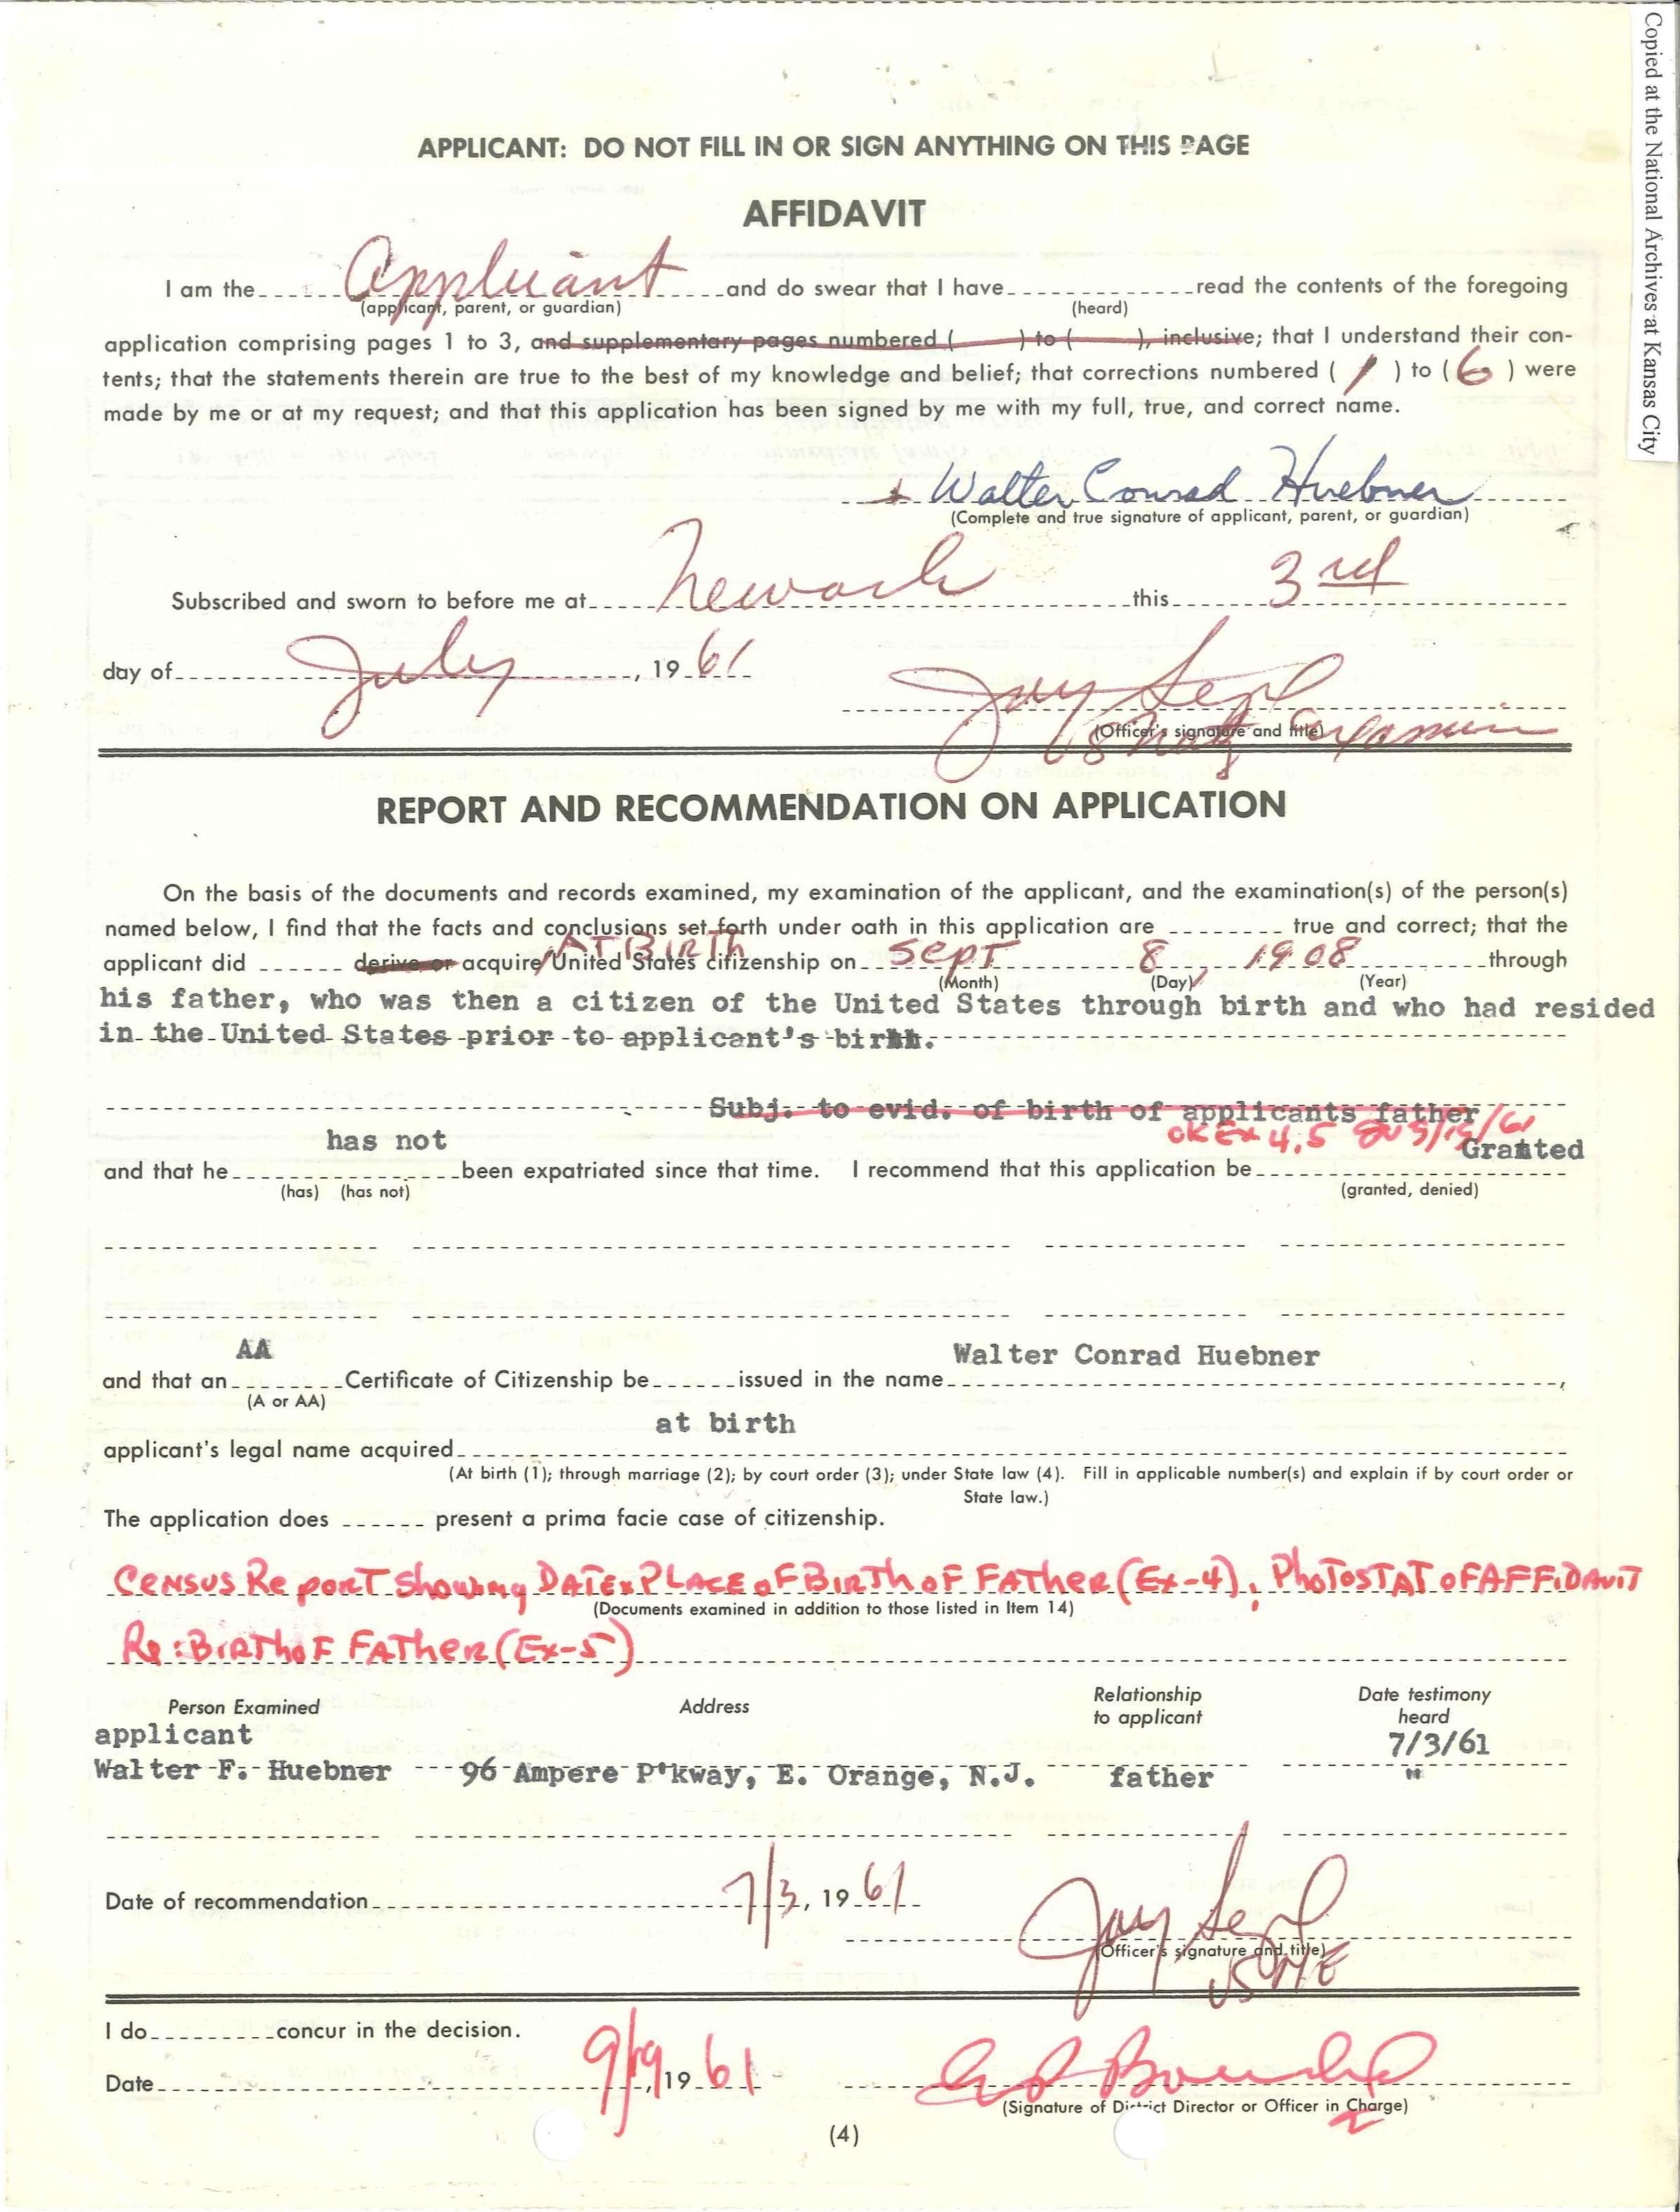 Copied at the National Archives at Kansas City
APPLICANT: DO NOT FILL IN OR SIGN ANYTHING ON THIS PAGE
AFFIDAVIT
I am the Applicant and do swear that I have read the contents of the foregoing
(applicant, parent, or guardian) (heard)
application comprising pages 1 to 3, and supplementary pages numbered ( ) to ( ), inclusive; that I understand their con-
tents; that the statements therein are true to the best of my knowledge and belief; that corrections numbered ( 1 ) to ( 6 ) were
made by me or at my request; and that this application has been signed by me with my full, true, and correct name.
Walter Conrad Huebner
(Complete and true signature of applicant, parent, or guardian)
Subscribed and sworn to before me at Newark this 3rd
day of July, 19 61
Jay
(Officer's signature and title)
US Natz Examiner
REPORT AND RECOMMENDATION ON APPLICATION
On the basis of the documents and records examined, my examination of the applicant, and the examination(s) of the person(s)
named below, I find that the facts and conclusions set forth under oath in this application are true and correct; that the
AT BIRTH
applicant did derive or acquire/United States citizenship on Sept 8, 1908 through
(Month) (Day) (Year)
his father, who was then a citizen of the United States through birth and who had resided
in the United States prior to applicant's birth.
Subj. to evid. of birth of applicants father
OK Ex 4,5
has not Granted
and that he been expatriated since that time. I recommend that this application be
(has) (has not) (granted, denied)
AA Walter Conrad Huebner
and that an Certificate of Citizenship be issued in the name ,
(A or AA)
at birth
applicant's legal name acquired
(At birth (1); through marriage (2); by court order (3); under State law (4). Fill in applicable number(s) and explain if by court order or
State law.)
The application does present a prima facie case of citizenship.
Census Report Showing DATE & PLACE OF BIRTH OF FATHER (Ex-4), PHOTOSTAT OF AFFIDAVIT
(Documents examined in addition to those listed in Item 14)
Re: BIRTH OF FATHER (Ex-5)
Person Examined Address Relationship to applicant Date testimony heard
applicant 7/3/61
Walter F. Huebner 96 Ampere P'kway, E. Orange, N.J. father "
Date of recommendation 7/3, 19 61
Jay
(Officer's signature and title)
USNE
I do concur in the decision.
Date 9/19, 19 61
(Signature of District Director or Officer in Charge)
(4)